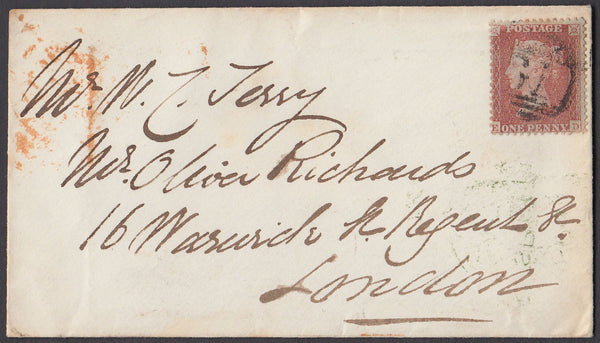 POSTAGE
ONE PENNY
Mr. W. C. Terry
Mrs. Oliver Richards
16 Warwick St. Regent St.
London